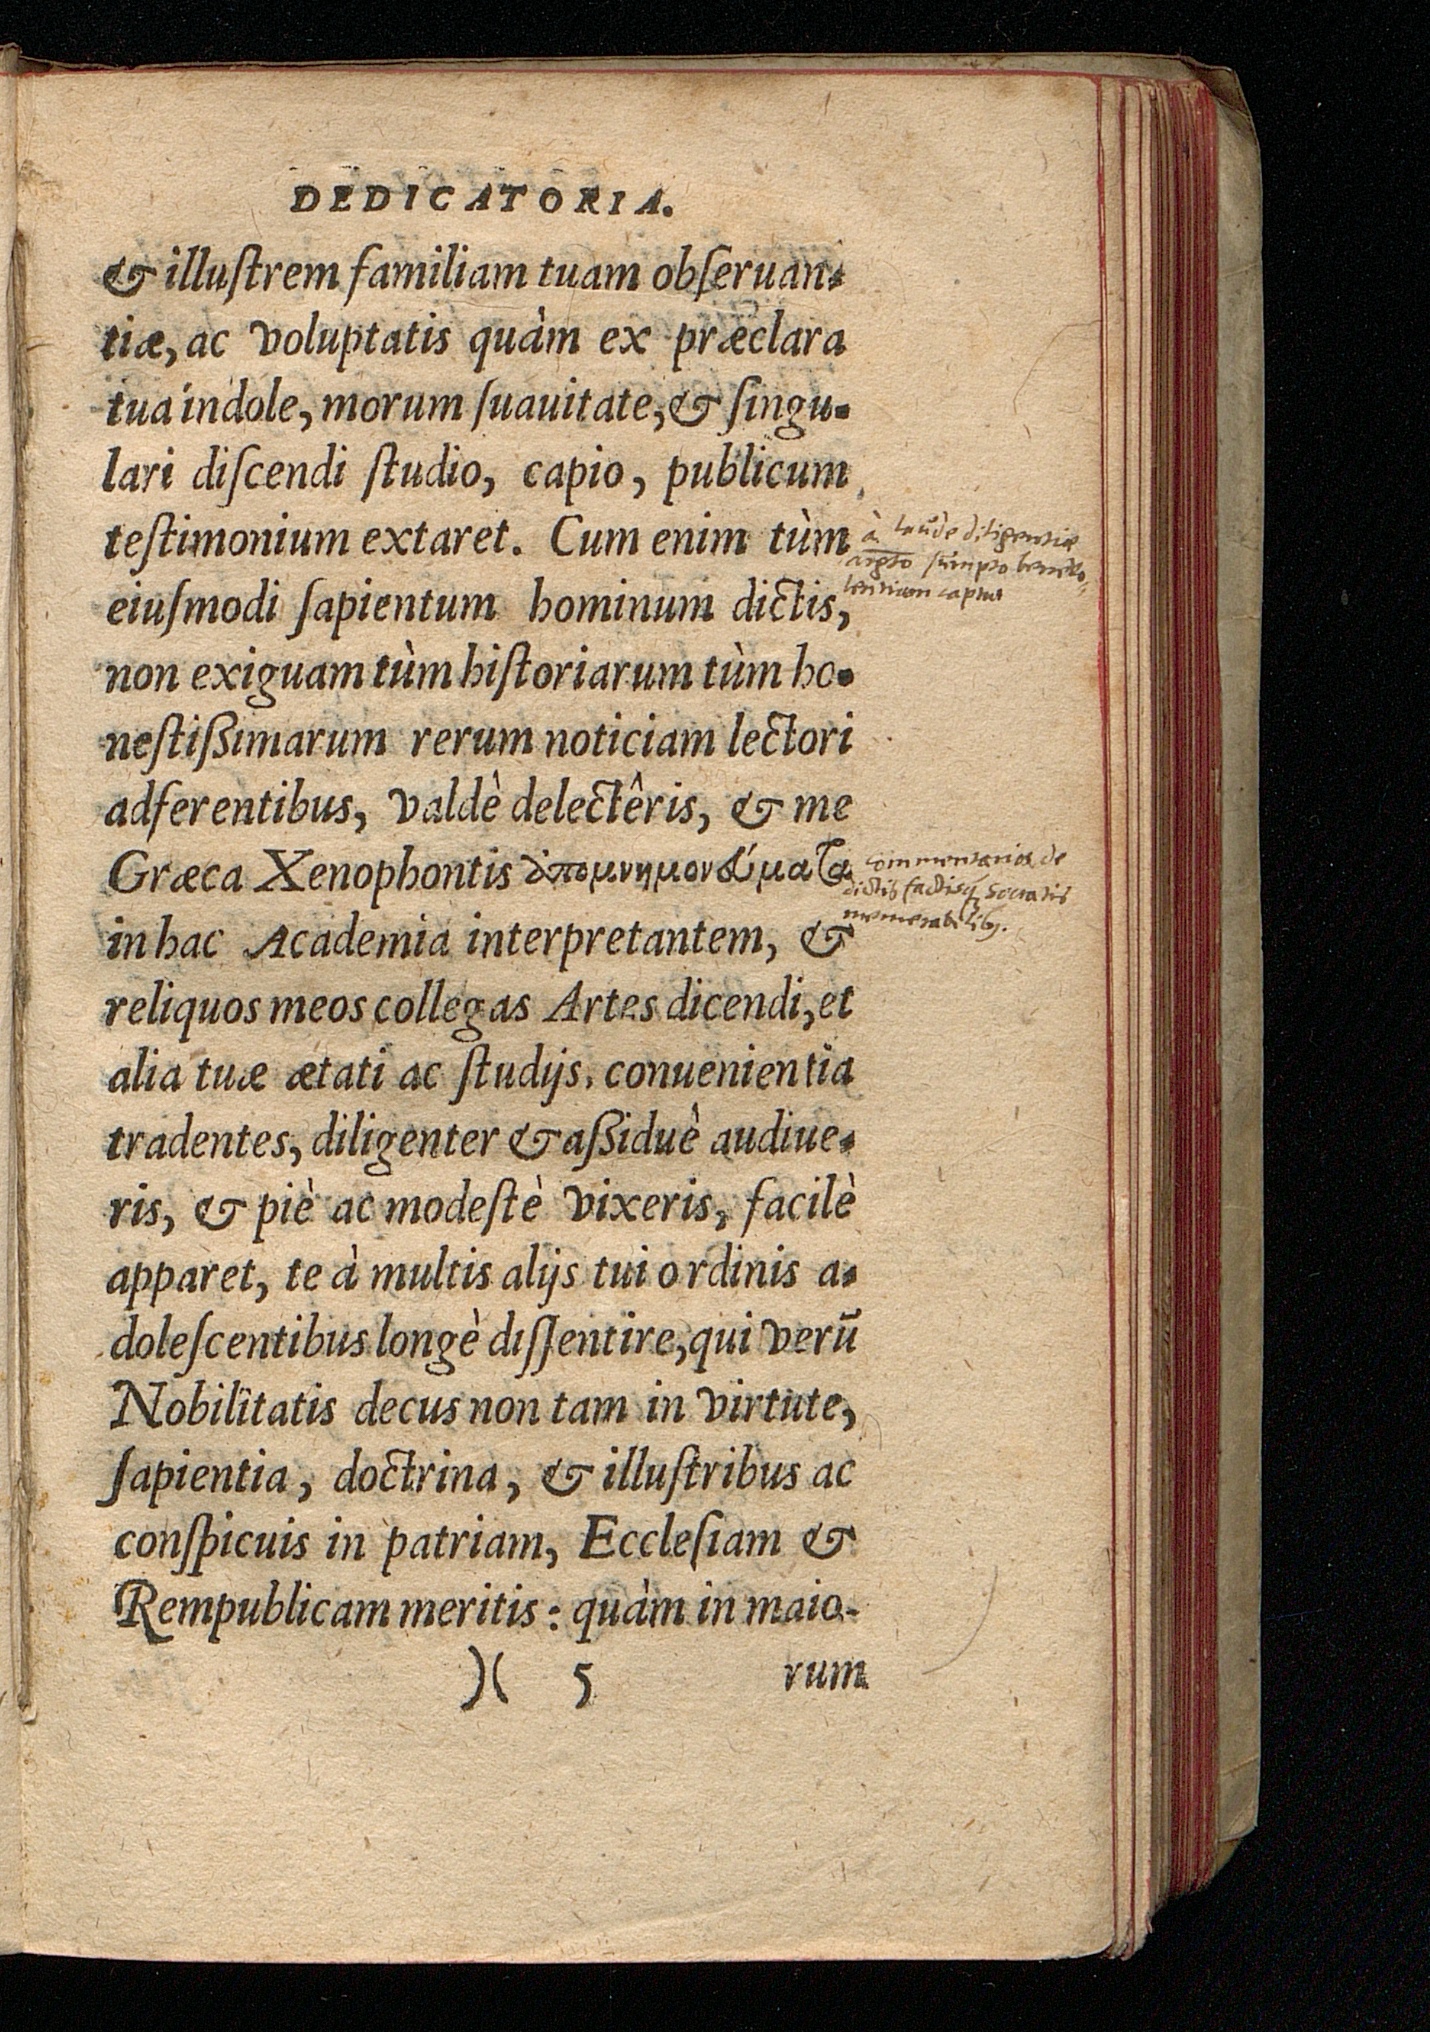 DEDICATORIA.
& illuſtrem familiam tuam obſeruan-
tiæ, ac voluptatis quàm ex præclara
tua indole, morum ſuauitate, & ſingu-
lari diſcendi ſtudio, capio, publicum
teſtimonium extaret. Cum enim tùm
à laude diligentiæ
sumpto beneuo-
lentiam captat
eiuſmodi ſapientum hominum dictis,
non exiguam tùm hiſtoriarum tùm ho-
neſtißimarum rerum noticiam lectori
adferentibus, valdè delectêris, & me
Græca Xenophontis ὑπομνημονεύματα
commentarios de
dictis factisq Socratis
memorabilibꝰ.
in hac Academia interpretantem, &
reliquos meos collegas Artes dicendi, et
alia tuæ ætati ac ſtudijs, conuenientia
tradentes, diligenter & aßiduè audiue-
ris, & piè ac modeſtè vixeris, facilè
apparet, te à multis alijs tui ordinis a-
doleſcentibus longè diſſentire, qui verū
Nobilitatis decus non tam in virtute,
ſapientia, doctrina, & illuſtribus ac
conſpicuis in patriam, Eccleſiam &
Rempublicam meritis: quàm in maio-
)( 5 rum